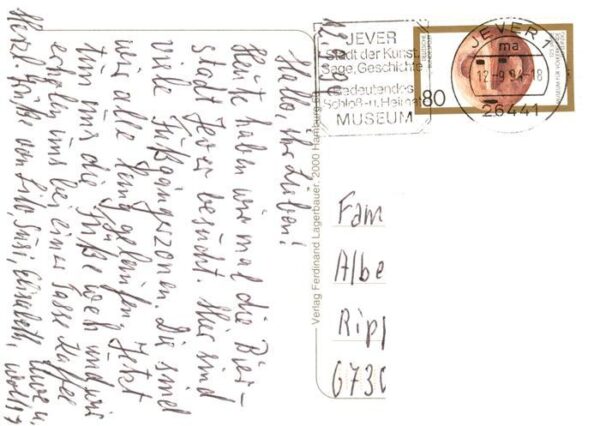 12.9.94
Hallo, ihr Lieben!
Heute haben wir mal die Bier-
stadt Jever besucht. Hier sind
viele Fußgängerzonen. Die sind
wir alle lang gelaufen. Jetzt
tun uns die Füße weh und wir
erholen uns bei einer Tasse Kaffee
Herzl. Grüße von Lilo, Susi, Elisabeth, Uwe u.
JEVER
Stadt der Kunst
Sage, Geschichte
Bedeutendes
Schloß-u. Heimat
MUSEUM
80
DEUTSCHE
BUNDESPOST
JEVER 1
ma
12-9.94-18
26441
Verlag Ferdinand Lagerbauer, 2000 Hamburg
Fam
Albe
Ripp
6730